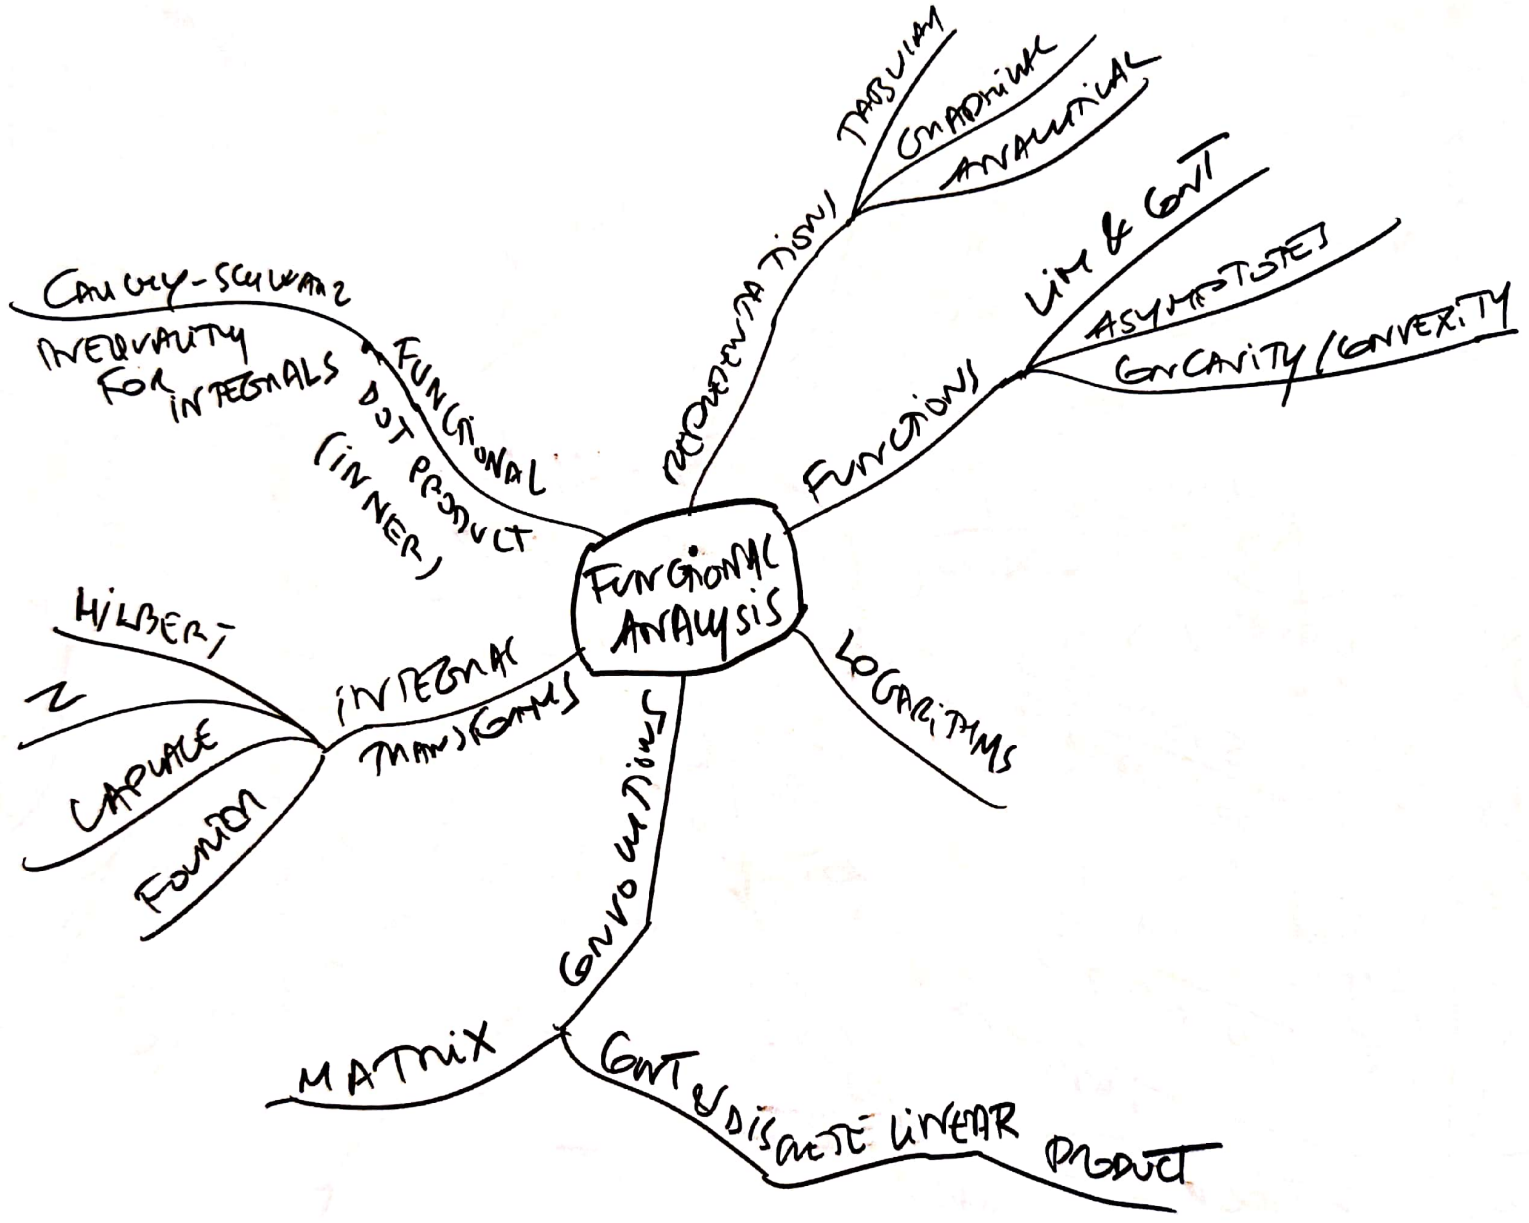 FUNCTIONAL
ANALYSIS
REPREDENTATIONS
TABULAR
GRAPHICAL
ANALYTICAL
FUNCTIONS
LIM & CONT
ASYMPTOTES
CONCAVITY/CONVEXITY
LOGARITHMS
CONVOLUTIONS
CONT & DISCRETE LINEAR PRODUCT
MATRIX
INTEGRAL
TRANSFORMS
FOURIER
LAPLACE
Z
HILBERT
FUNCTIONAL
DOT PRODUCT
(INNER)
CAUCHY-SCHWARZ
INEQUALITY
FOR
INTEGRALS